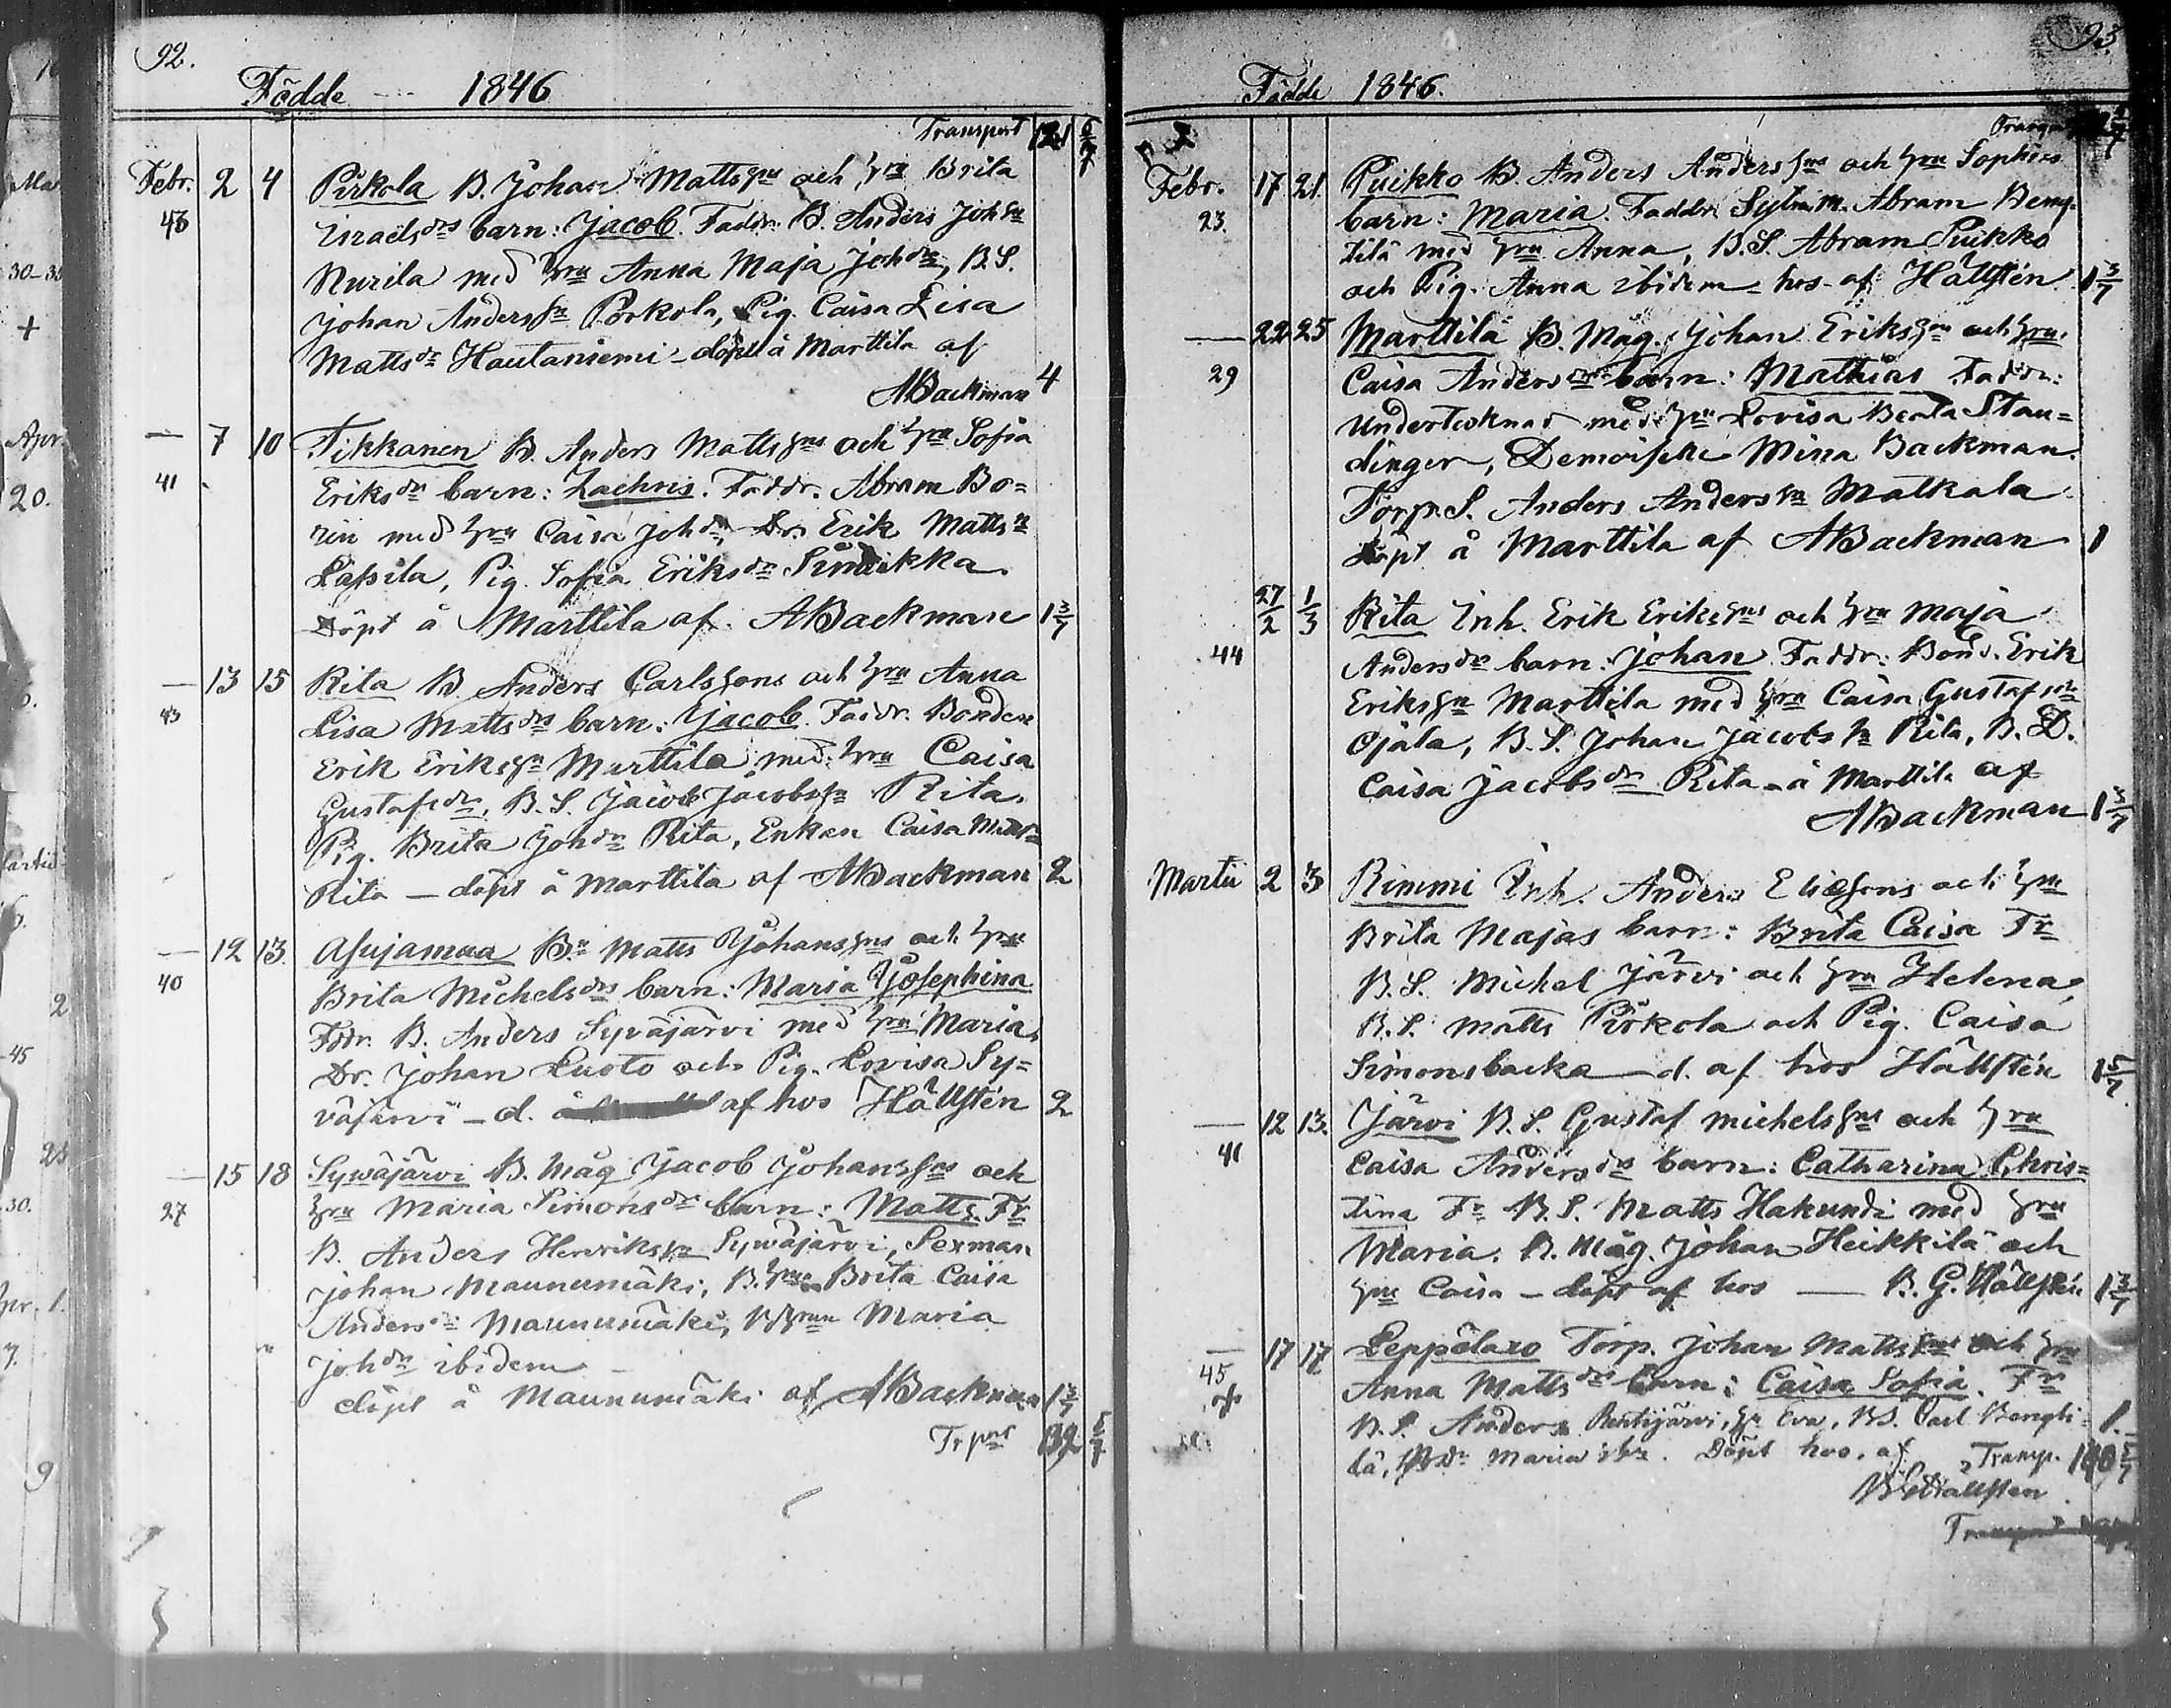 92.
Födde 1846
Transport 121 6/7
Febr. 2 4 Pirkola B. Johan Mattssons och hru Brita
Israelsdrs barn: Jacob. Faddr. B. Anders Johsn
Nurila med hru Anna Maja Johdr, B.S.
Johan Anderssn Porkola, Pig. Caisa Lisa
Mattsdr Hautaniemi - döpt å Marttila af
ABackman 4
— 7 10 Tikkanen B. Anders Mattssns och hru Sofia
41 Eriksdrs barn: Zachris. Faddr. Abram Bo=
rin med hru Caisa Johdr, Dr. Erik Mattsn
Lassila, Pig. Sofia Eriksdr
Döpt å Marttila af ABackman 1 3/7
— 13 15 Rita B. Anders Carlssons och hru Anna
43 Lisa Mattsdrs barn: Jacob. Faddr. Bonden
Erik Erikssn Marttila med hru Caisa
Gustafsdr, B.S. Jacob Jacobssn Rita.
Pig. Brita Johdr Rita, Enkan Caisa
Rita — döpt å Marttila af ABackman 2
— 12 13. Asujamaa Bn Matts Johanssns och hru
40 Brita Michelsdrs barn: Maria Josephina
Fddr. B. Anders Sywäjärvi med hru Maria,
Dr. Johan Luoto och Pig. Lovisa Sy=
väjärvi - d. å af hos Hällstén 2
— 15 18 Sywäjärvi B. Måg Jacob Johanssns och
27 hru Maria Simonsdrs barn: Matts. Fr
B. Anders Henrikssn Sywäjärvi, Sexman
Johan Maunumäki, B. hru Brita Caisa
Andersdr Maunumäki, B hrun Maria
Johdr ibidem
döpt å Maunumäki af ABackman 1 3/7
Trprt 132 6/7
93
Födde 1846.
Febr. 17 21. Puikko B. Anders Anderssns och hru Sophies
23. barn: Maria. Faddr. Abram Beng=
tilä med hru Anna, B.S. Abram Puikko
och Pig. Anna ibidem - hos af Hällstén 1 3/7
— 22 25 Marttila B. Måg. Johan Erikssns och hru
29 Caisa Andersdrs barn: Mathias Faddr:
Undertecknad med hru Lovisa Beata Stau=
dinger, Demoiselle Mina Backman.
Torp.S. Anders Anderssn Matkala
döpt å Marttila af ABackman 1
27/2 1/3 Rita Inh. Erik Erikssns och hru Maja
44 Andersdrs barn: Johan Faddr: Bond. Erik
Erikssn Marttila med hru Caisa Gustafsdr
Ojala, B.S. Johan Jacobssn Rita, B.D.
Caisa Jacobsdr Rita - å Marttila af
ABackman 1 3/7
Martii 2 3 Rimmi Inh. Anders Eliæsons och hru
Brita Majas barn: Brita Caisa Fr
B.S. Michel Järvi och hru Helena,
B.S. Matts Pirkola och Pig. Caisa
Simonsbacka — d. af hos Hällstén 1 5/7
— 12 13. Järvi B.S. Gustaf Michelssns och hru
41 Caisa Andersdrs barn: Catharina Chris=
tina Fr B.S. Matts Hakundi med hru
Maria. B. Måg. Johan Heikkilä och
hru Caisa — döpt af hos — B.G. Hällstén 1 3/7
— 17 17 Leppälaxo Torp. Johan Mattssns och hru
45 Anna Mattsdrs barn: Caisa Sofia. Fr
B.S. Anders Pentijärvi, hr Eva, BS. Carl Bengti= 1.
lä, Maria Döpt hos. af Transp. 140 5/7
BGHällsten